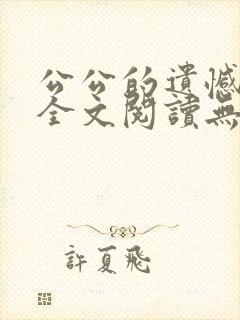 公公的遺憾
全文閱讀無
許夏飛